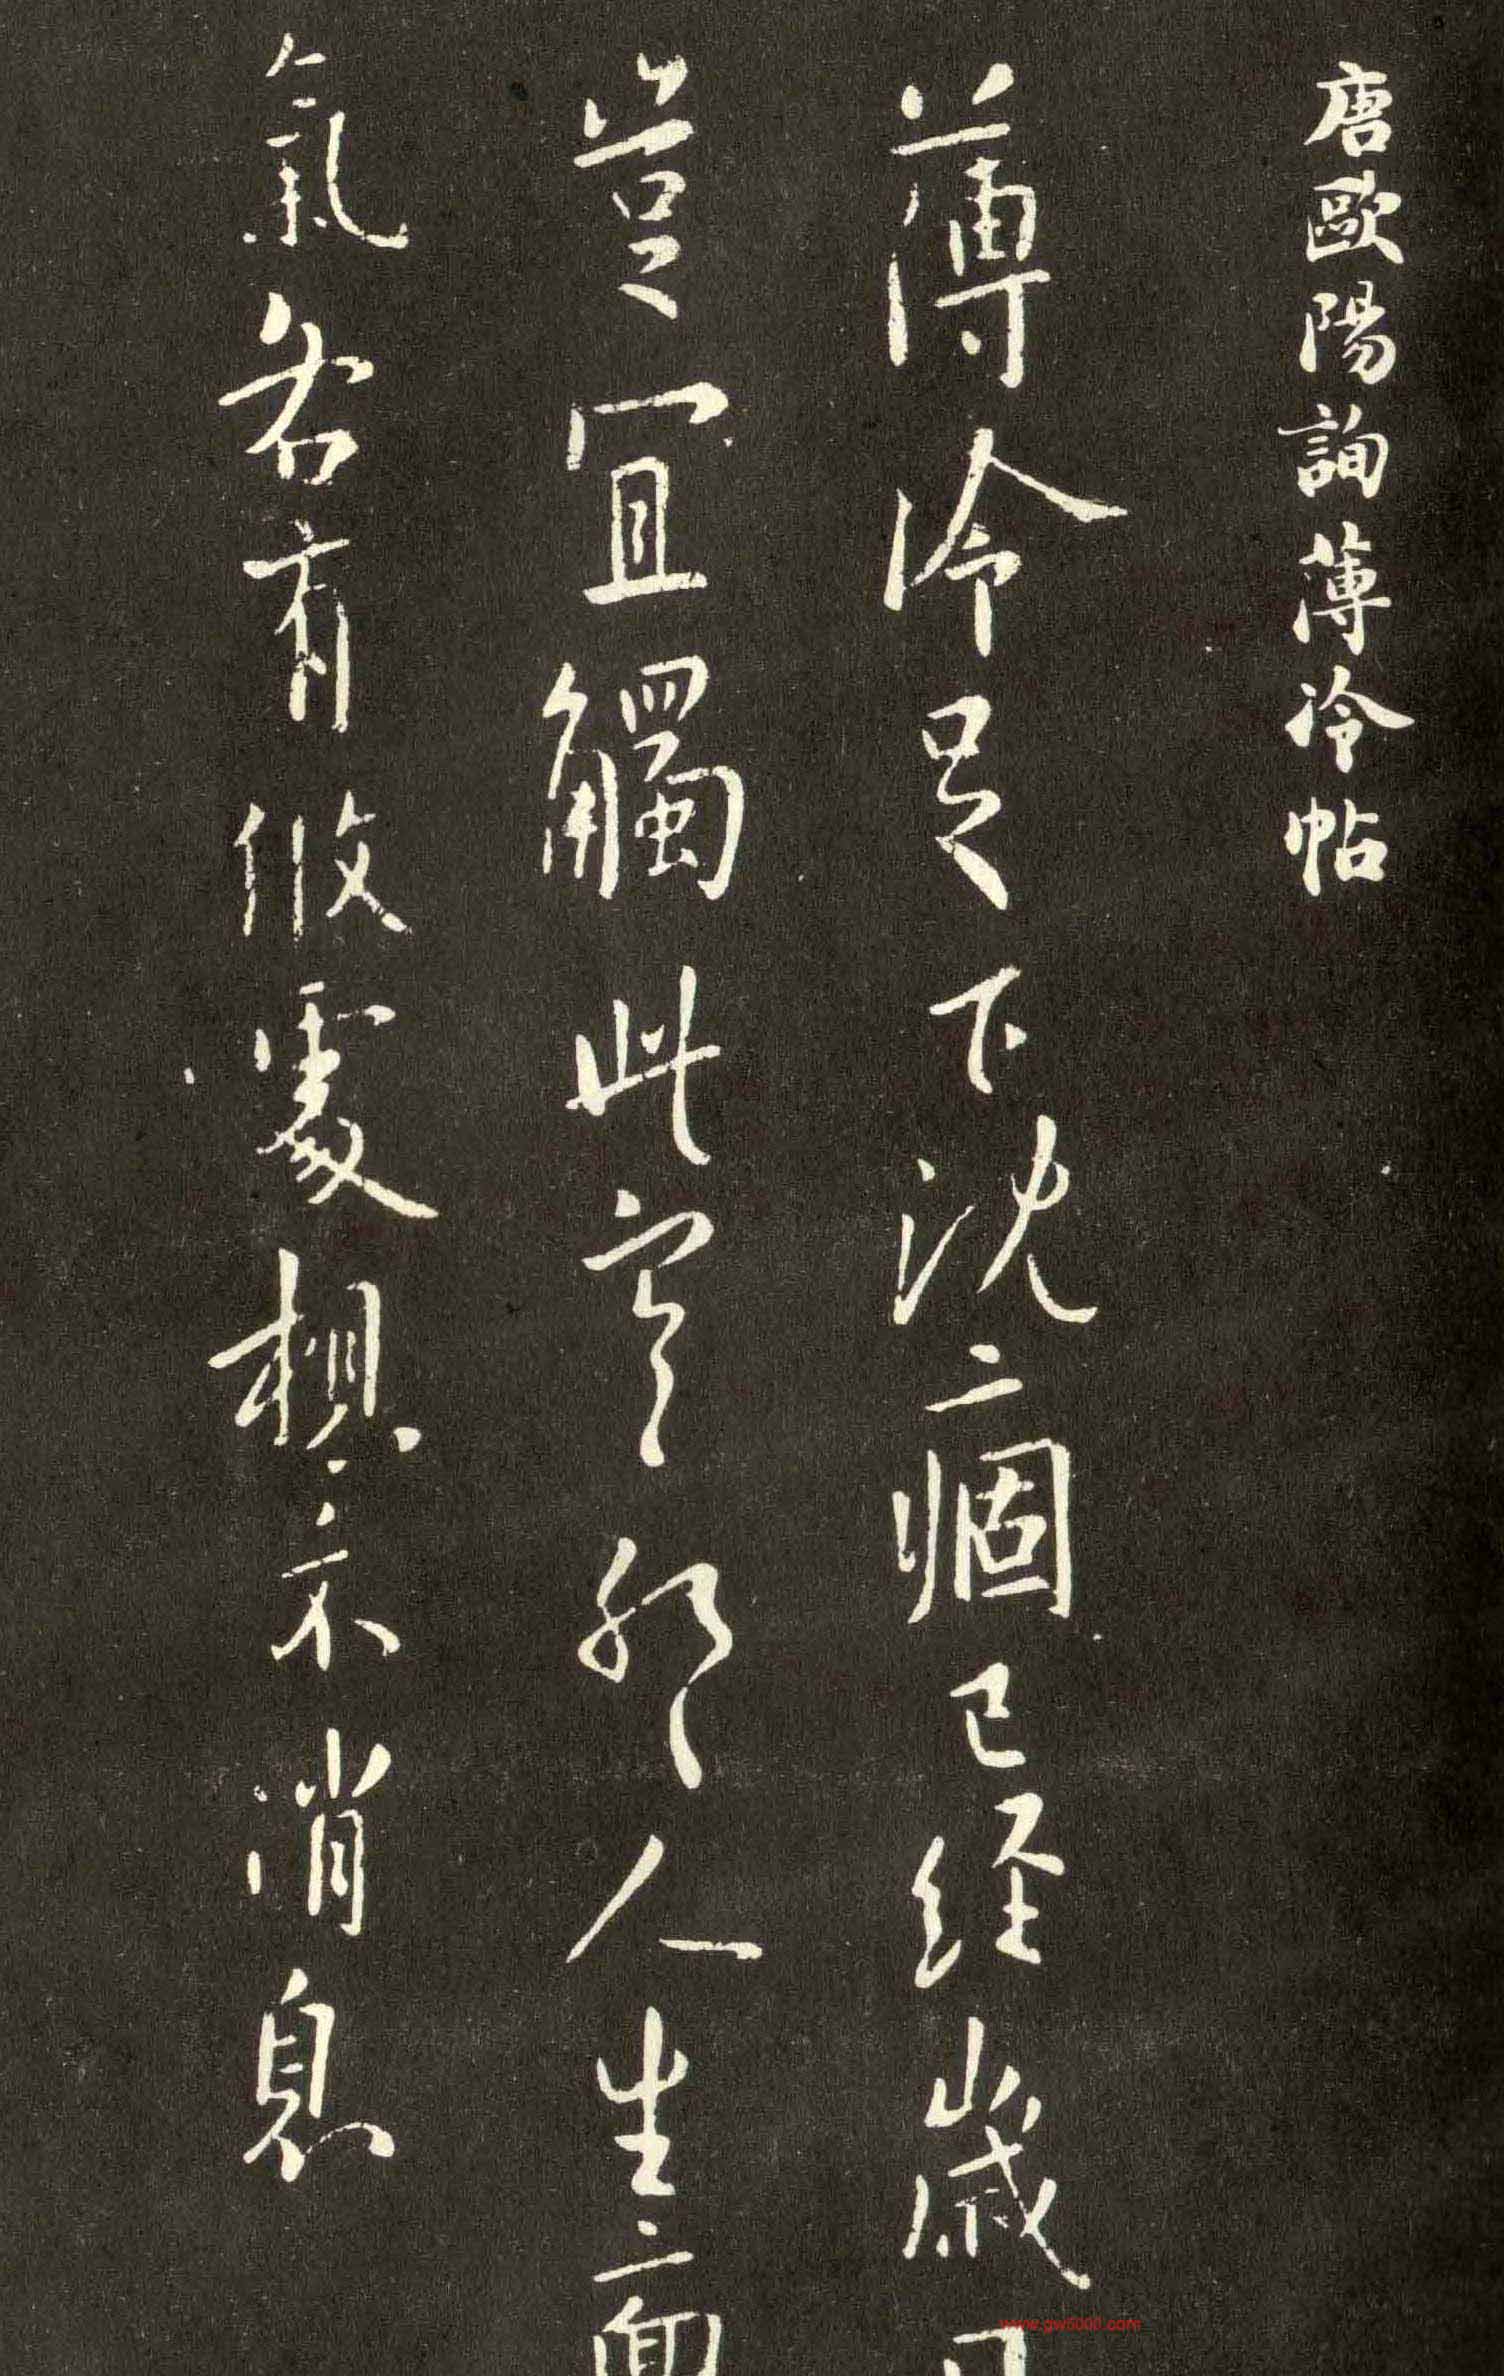 唐歐陽詢薄冷帖
薄冷足下沈痼已經歲月
豈宜觸此寒耶人生面
氣若有攸處想示消息
www.gw5000.com